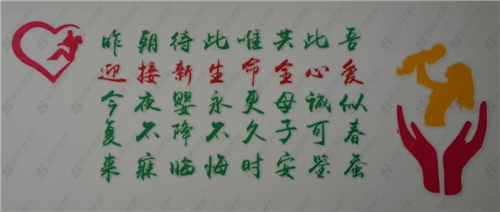 昨迎今夏来
朝接夜不寐
待新婴降临
此生永不悔
唯命更久时
共全母子安
此心诚可鉴
吾爱似春蚕